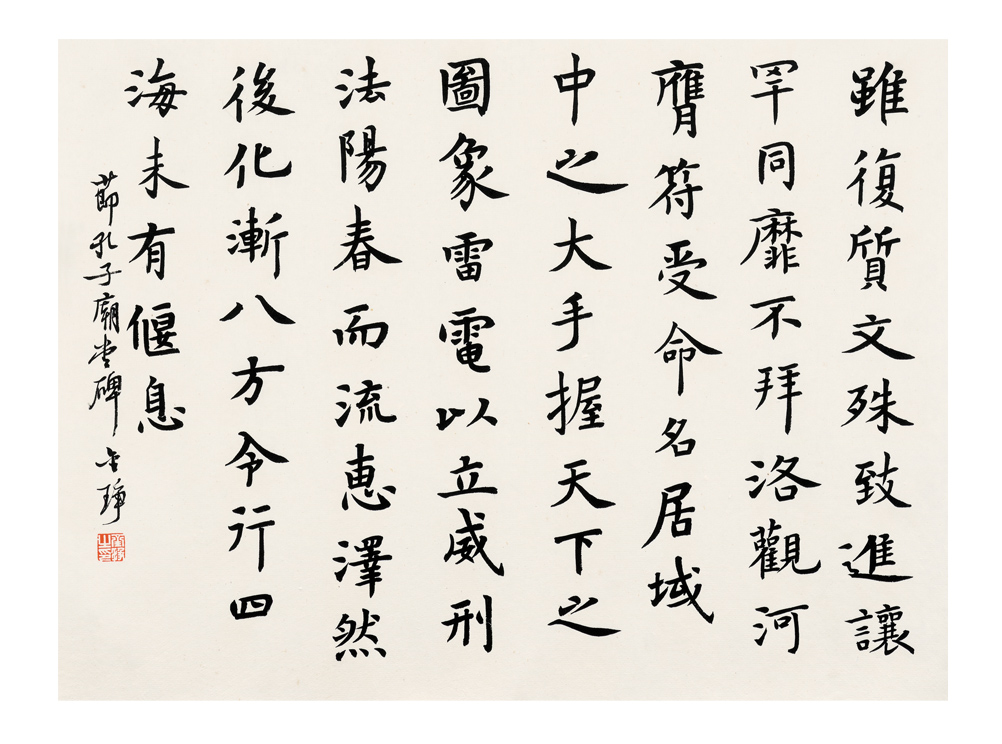 雖復質文殊致進讓
罕同靡不拜洛觀河
膺符受命名居域
中之大手握天下之
圖象雷電以立威刑
法陽春而流惠澤然
後化漸八方令行四
海未有偃息
節孔子廟堂碑